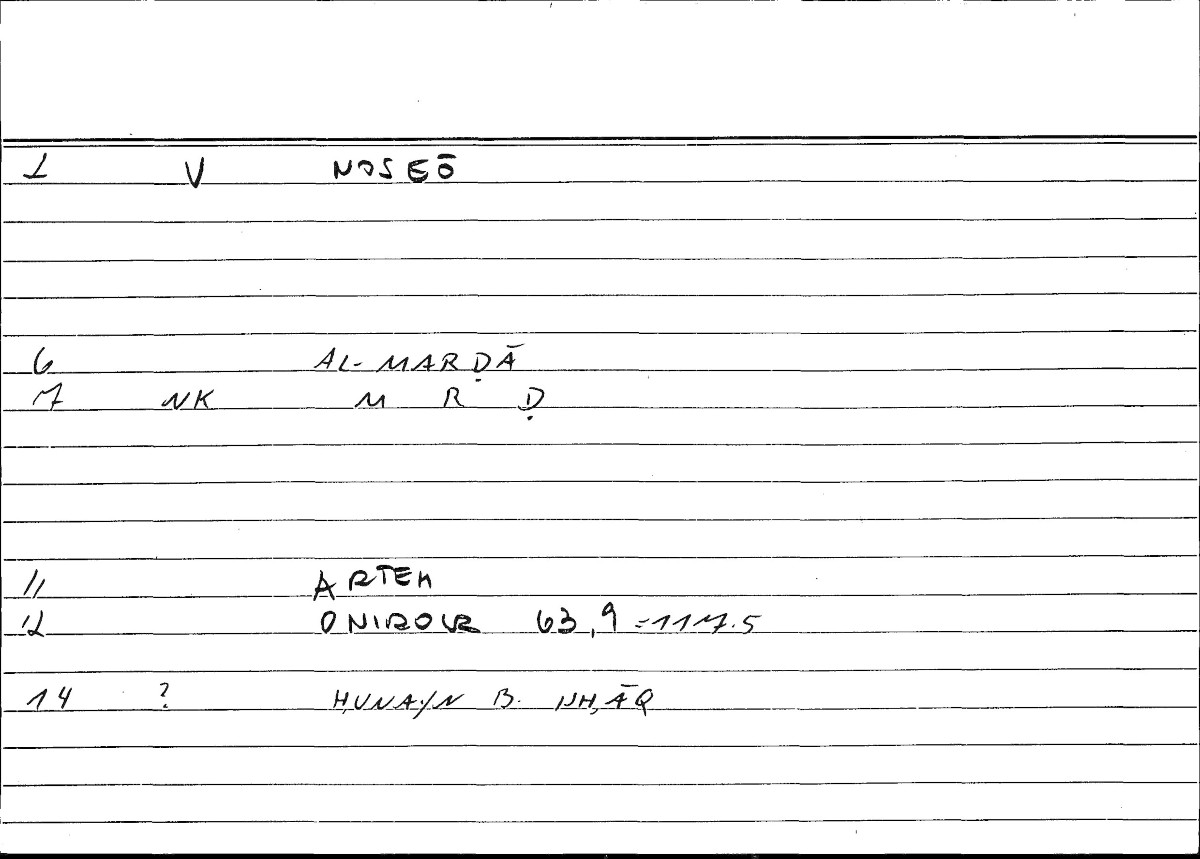 1 V NOSEŌ
6 AL-MARḌĀ
7 NK M R Ḍ
11 ARTEM
12 ONIROCR 63,9 = 117.5
14 ? ḤUNAYN B. ISḤĀQ